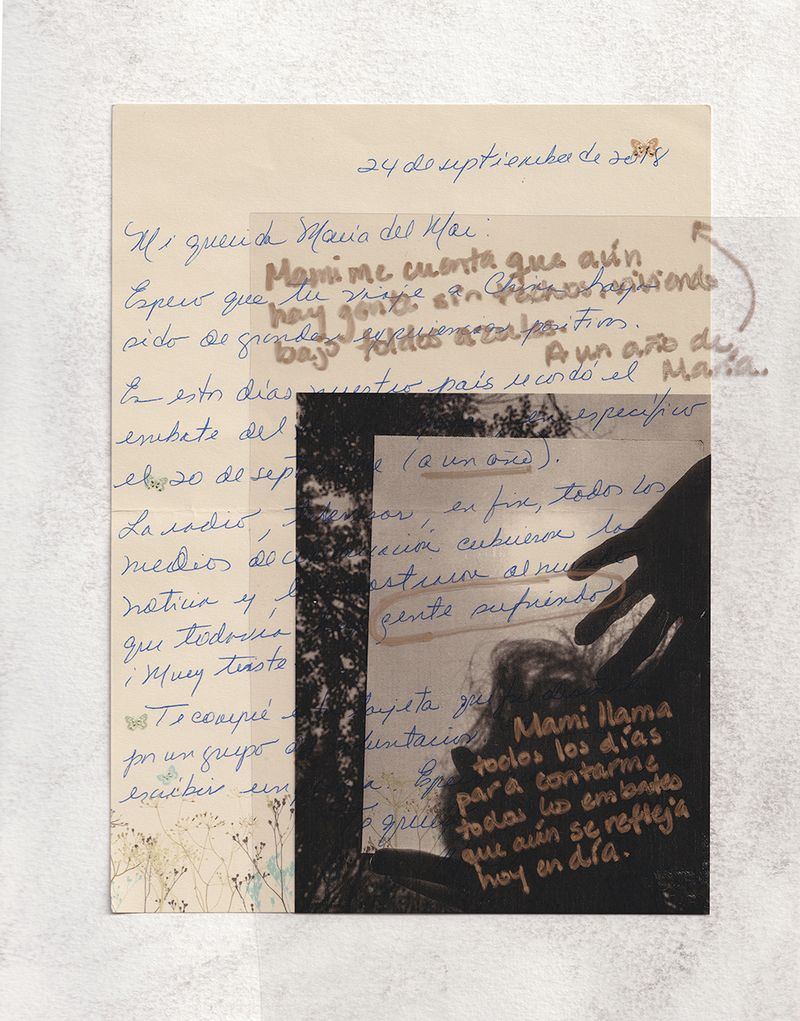 24 de septiembre de 2018
Mi querida María del Mar:
Mami me cuenta que aún
Espero que tu viaje a China haya
hay gente sin techos viviendo
sido de grandes experiencias positivas.
bajo toldos azules.
A un año de
María.
En estos días nuestro país recordó el
embate del específico
el 20 de sept (a un año).
La radio, en fin, todos los
medios de cubrieron la
noticia y al mundo
que todavía gente sufriendo
¡Muy triste
Te compré tarjeta que
por un grupo de
escribir
Mami llama
todos los días
para contarme
todos los embates
que aún se refleja
hoy en día.